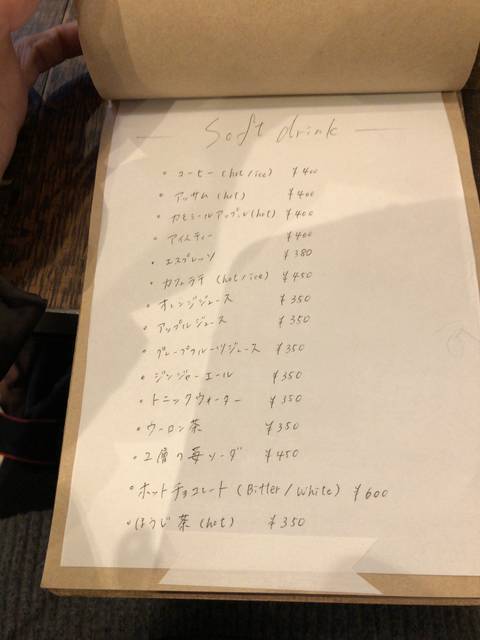 Soft drink
・コーヒー (hot/ice) ¥400
・アッサム (hot) ¥400
・カモミールアップル (hot) ¥400
・アイスティー ¥400
・エスプレッソ ¥380
・カフェラテ (hot/ice) ¥450
・オレンジジュース ¥350
・アップルジュース ¥350
・グレープフルーツジュース ¥350
・ジンジャーエール ¥350
・トニックウォーター ¥350
・ウーロン茶 ¥350
・2層の苺ソーダ ¥450
・ホットチョコレート (Bitter/White) ¥600
・ほうじ茶 (hot) ¥350